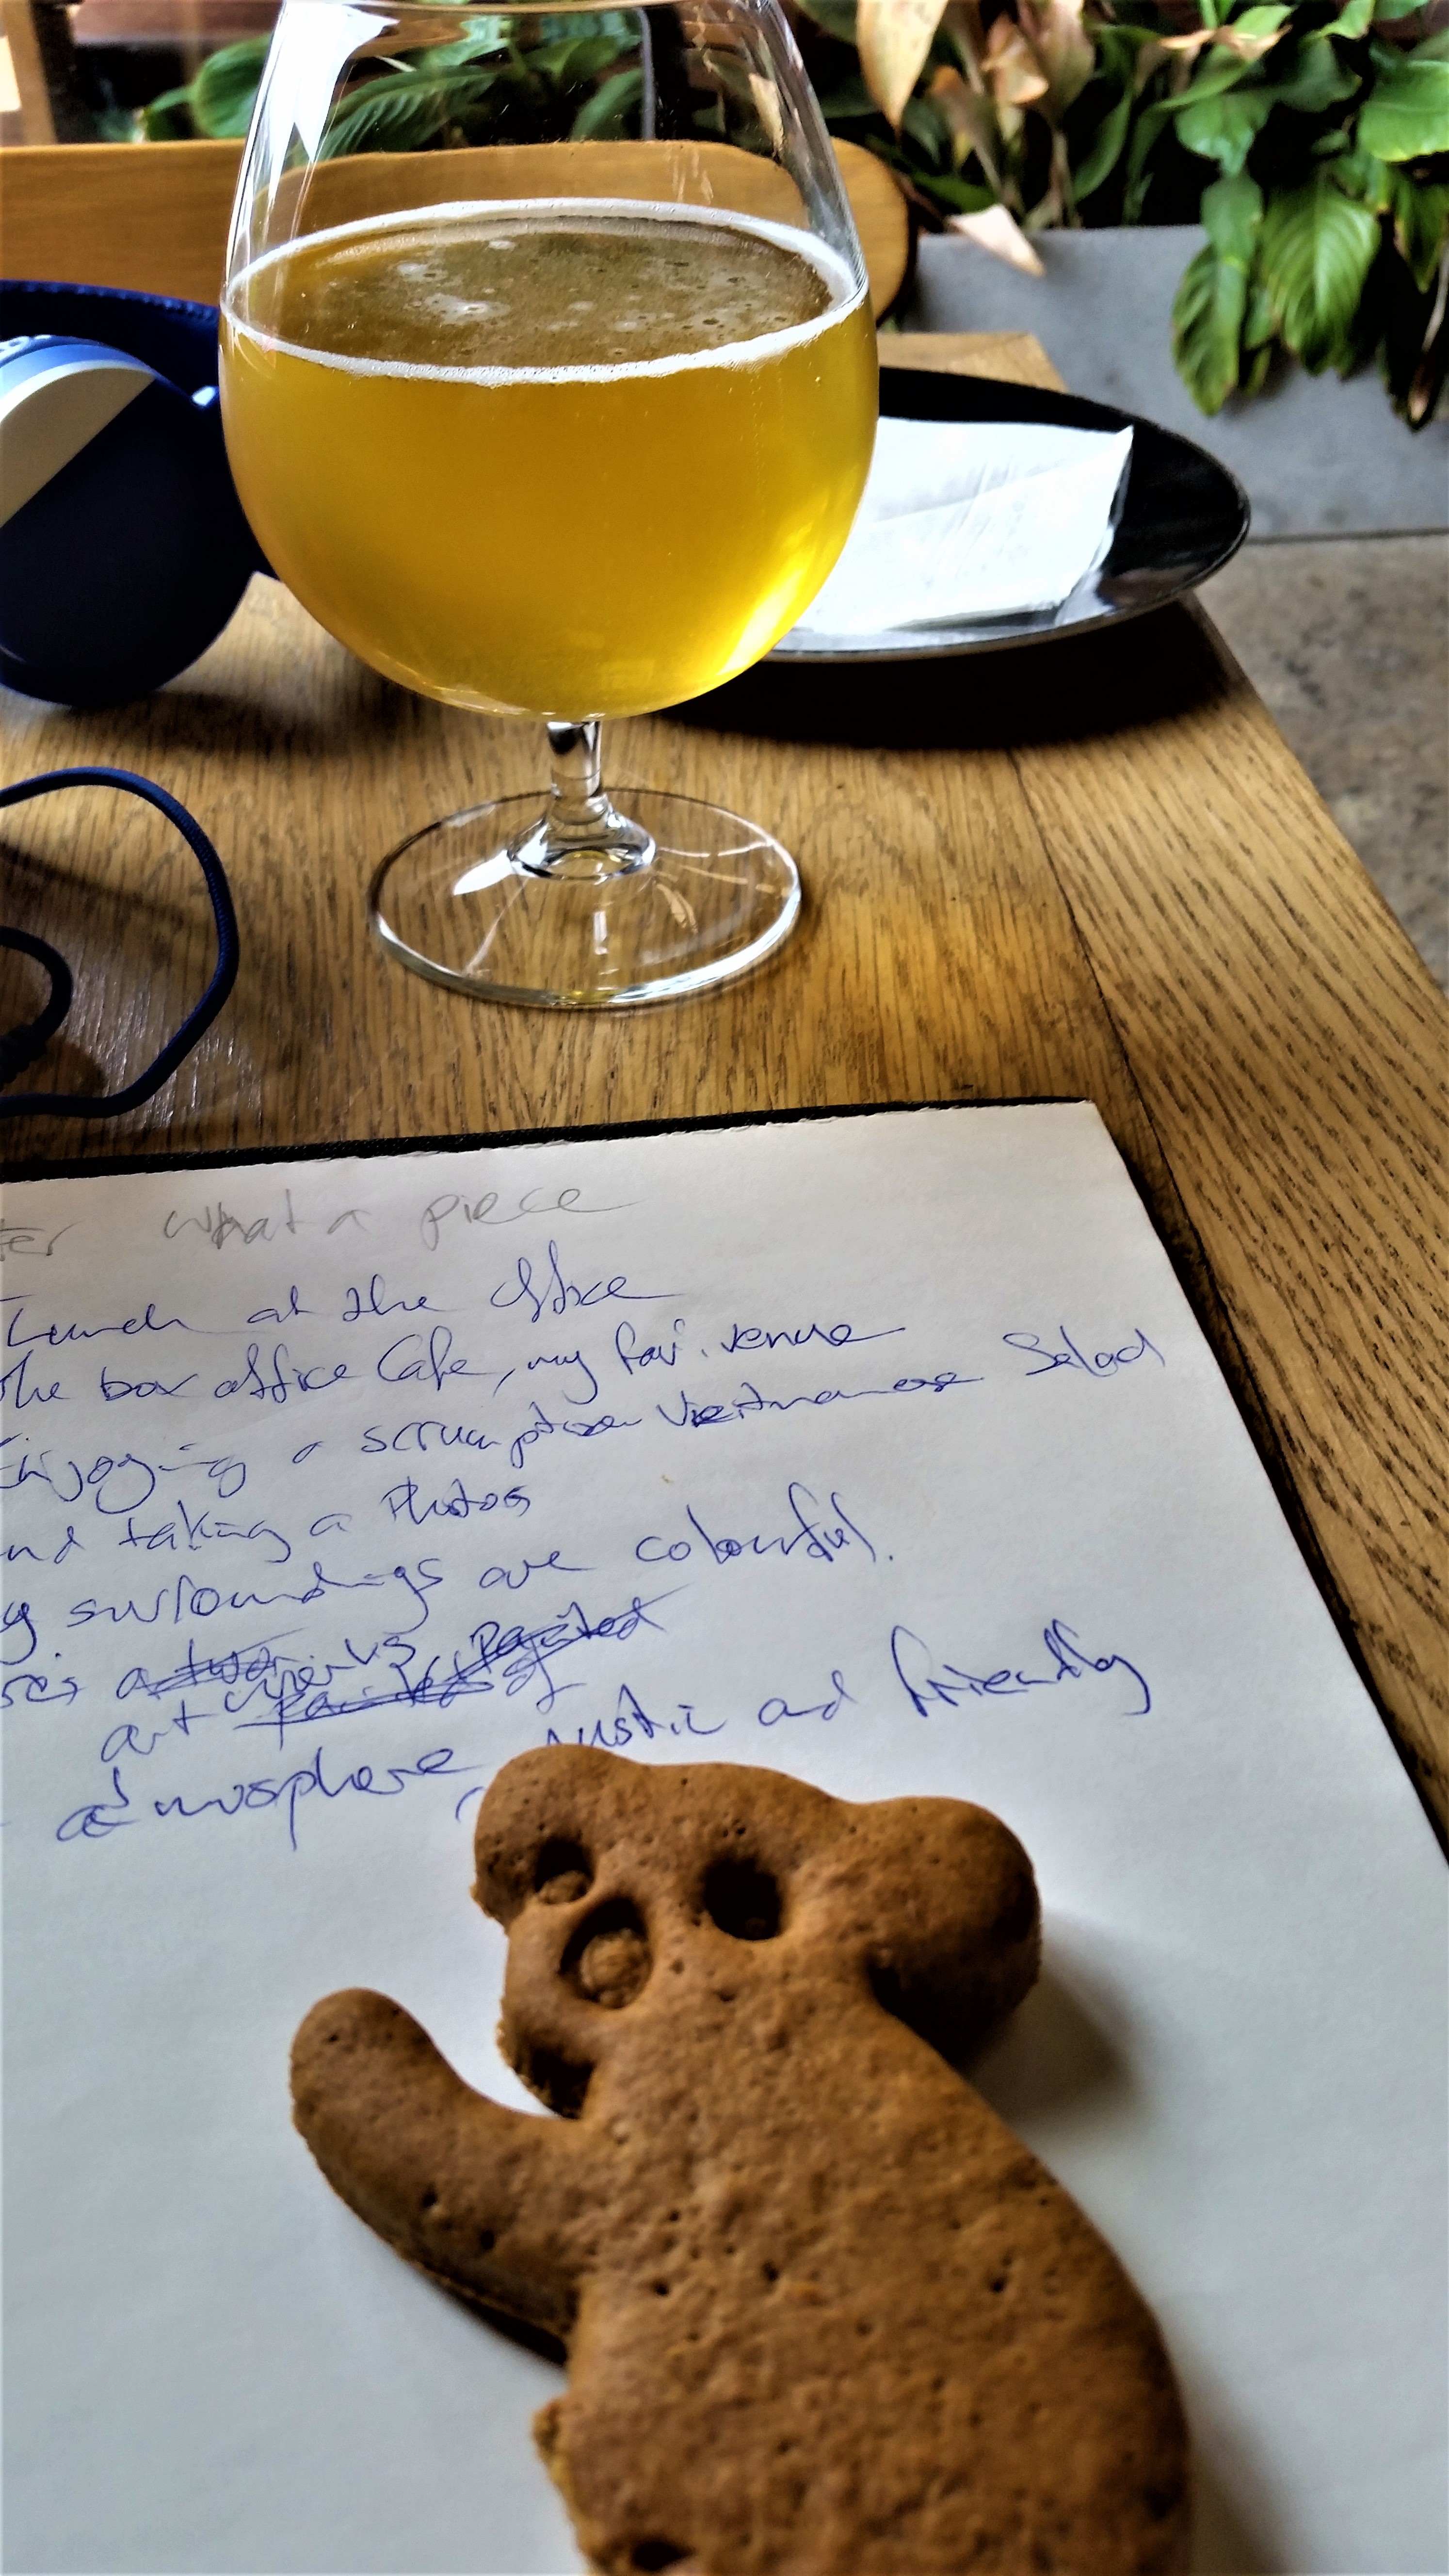 ter what a piece
Lunch at the office
The box office Cafe, my fav. venue
Enjoying a scrumption Vietnamese Salad
and taking a Photos
y surroundings are colourful.
art
atmosphere, rustic and friendly